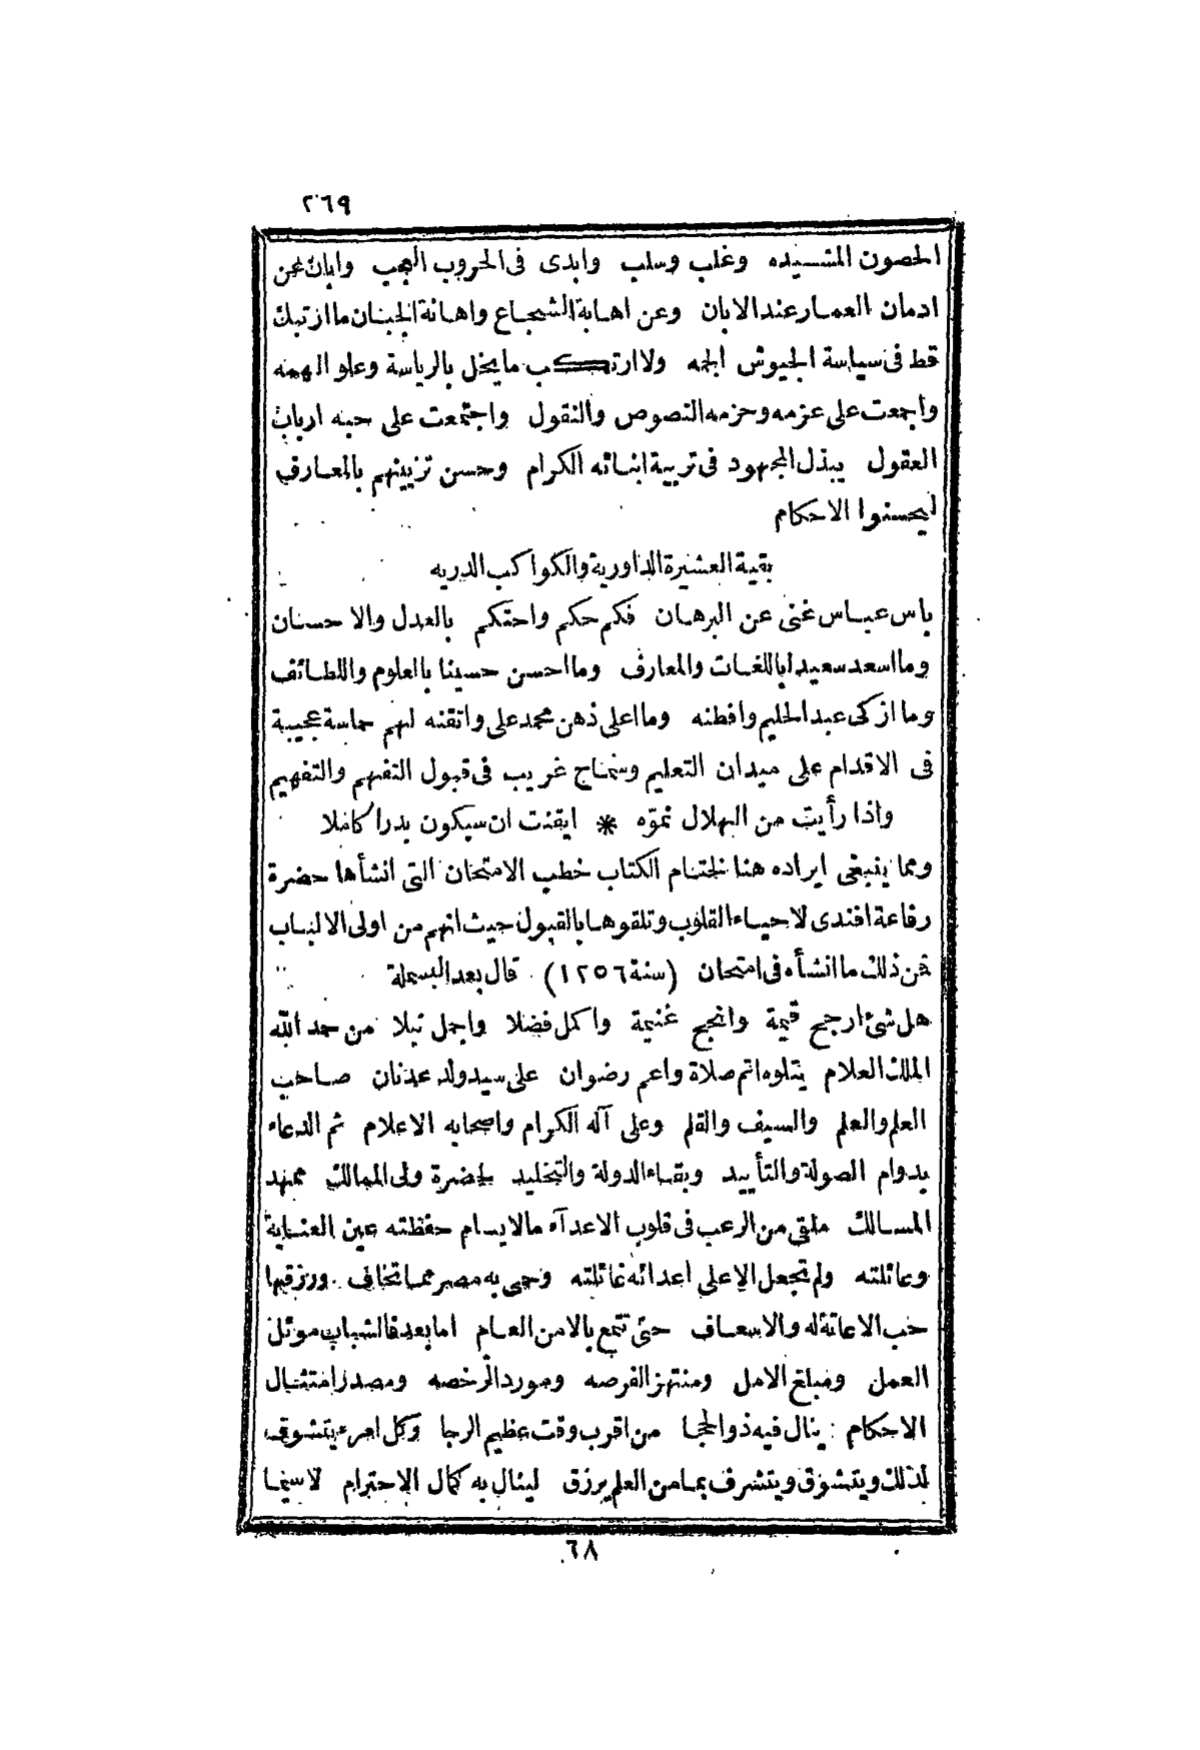 ٢٦٩
الحصون المشيده وغلب وسلب وابدى فى الحروب العجب وابان عن
ادمان العمار عند الابان وعن اهابة الشجاع واهانة الجبان ما ارتبك
قط فى سياسة الجيوش الجمه ولا ارتكب ما يخل بالرياسة وعلو الهمه
واجمعت على عزمه وحزمه النصوص والنقول واجتمعت على حبه ارباب
العقول يبذل المجهود فى تربية ابنائه الكرام وحسن تزيينهم بالمعارف
ليحسنوا الاحكام
بقية العشيرة الداورية والكواكب الدريه
باس عباس غنى عن البرهان فكم حكم واحتكم بالعدل والاحسان
وما اسعد سعيدا باللغات والمعارف وما احسن حسينا بالعلوم واللطائف
وما ازكى عبد الحليم وافطنه وما اعلى ذهن محمد على واتقنه لهم حماسة عجيبة
فى الاقدام على ميدان التعليم وسماح غريب فى قبول التفهم والتفهيم
واذا رأيت من الهلال نموّه * ايقنت ان سيكون بدرا كاملا
ومما ينبغى ايراده هنا لختام الكتاب خطب الامتحان التى انشأها حضرة
رفاعة افندى لاحياء القلوب وتلقوها بالقبول حيث انهم من اولى الالباب
فمن ذلك ما انشأه فى امتحان (سنة ١٢٥٦) قال بعد البسملة
هل شئ ارجح قيمة وانجح غنيمة واكمل فضلا واجمل نبلا من حمد الله
الملك العلام يتلوه اتم صلاة واعم رضوان على سيد ولد عدنان صاحب
العلم والعلم والسيف والقلم وعلى آله الكرام واصحابه الاعلام ثم الدعاء
بدوام الصولة والتأييد وبقاء الدولة والتخليد لحضرة ولى الممالك ممهد
المسالك ملقى من الرعب فى قلوب الاعدآء مالا يسام حفظته عين العناية
وعائلته ولم تجعل الا على اعدائه غائلته وحمى به مصر مما تخاف ورزقها
حب الاعانة له والاسعاف حتى تتمتع بالامن العام اما بعد فالشباب موئل
العمل ومبلغ الامل ومنتهز الفرصه ومورد الرخصه ومصدر امتثال
الاحكام ينال فيه ذو الحجا من اقرب وقت عظيم الرجا وكل امرء يتشوف
لذلك ويتشوق ويتشرف بما من العلم يرزق لينال به كمال الاحترام لاسيما
٦٨